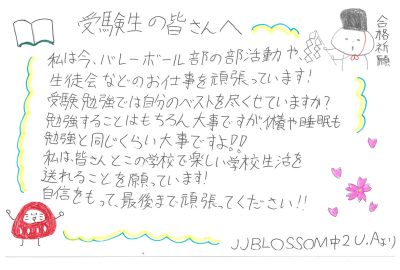 受験生の皆さんへ
合格祈願
私は今、バレーボール部の部活動や、
生徒会などのお仕事を頑張っています!
受験勉強では自分のベストを尽くせていますか?
勉強することはもちろん大事ですが、休憩や睡眠も
勉強と同じくらい大事ですよ!!
私は、皆さんとこの学校で楽しい学校生活を
送れることを願っています!
自信をもって、最後まで頑張ってください!!
JJBLOSSOM中2 U.Aより